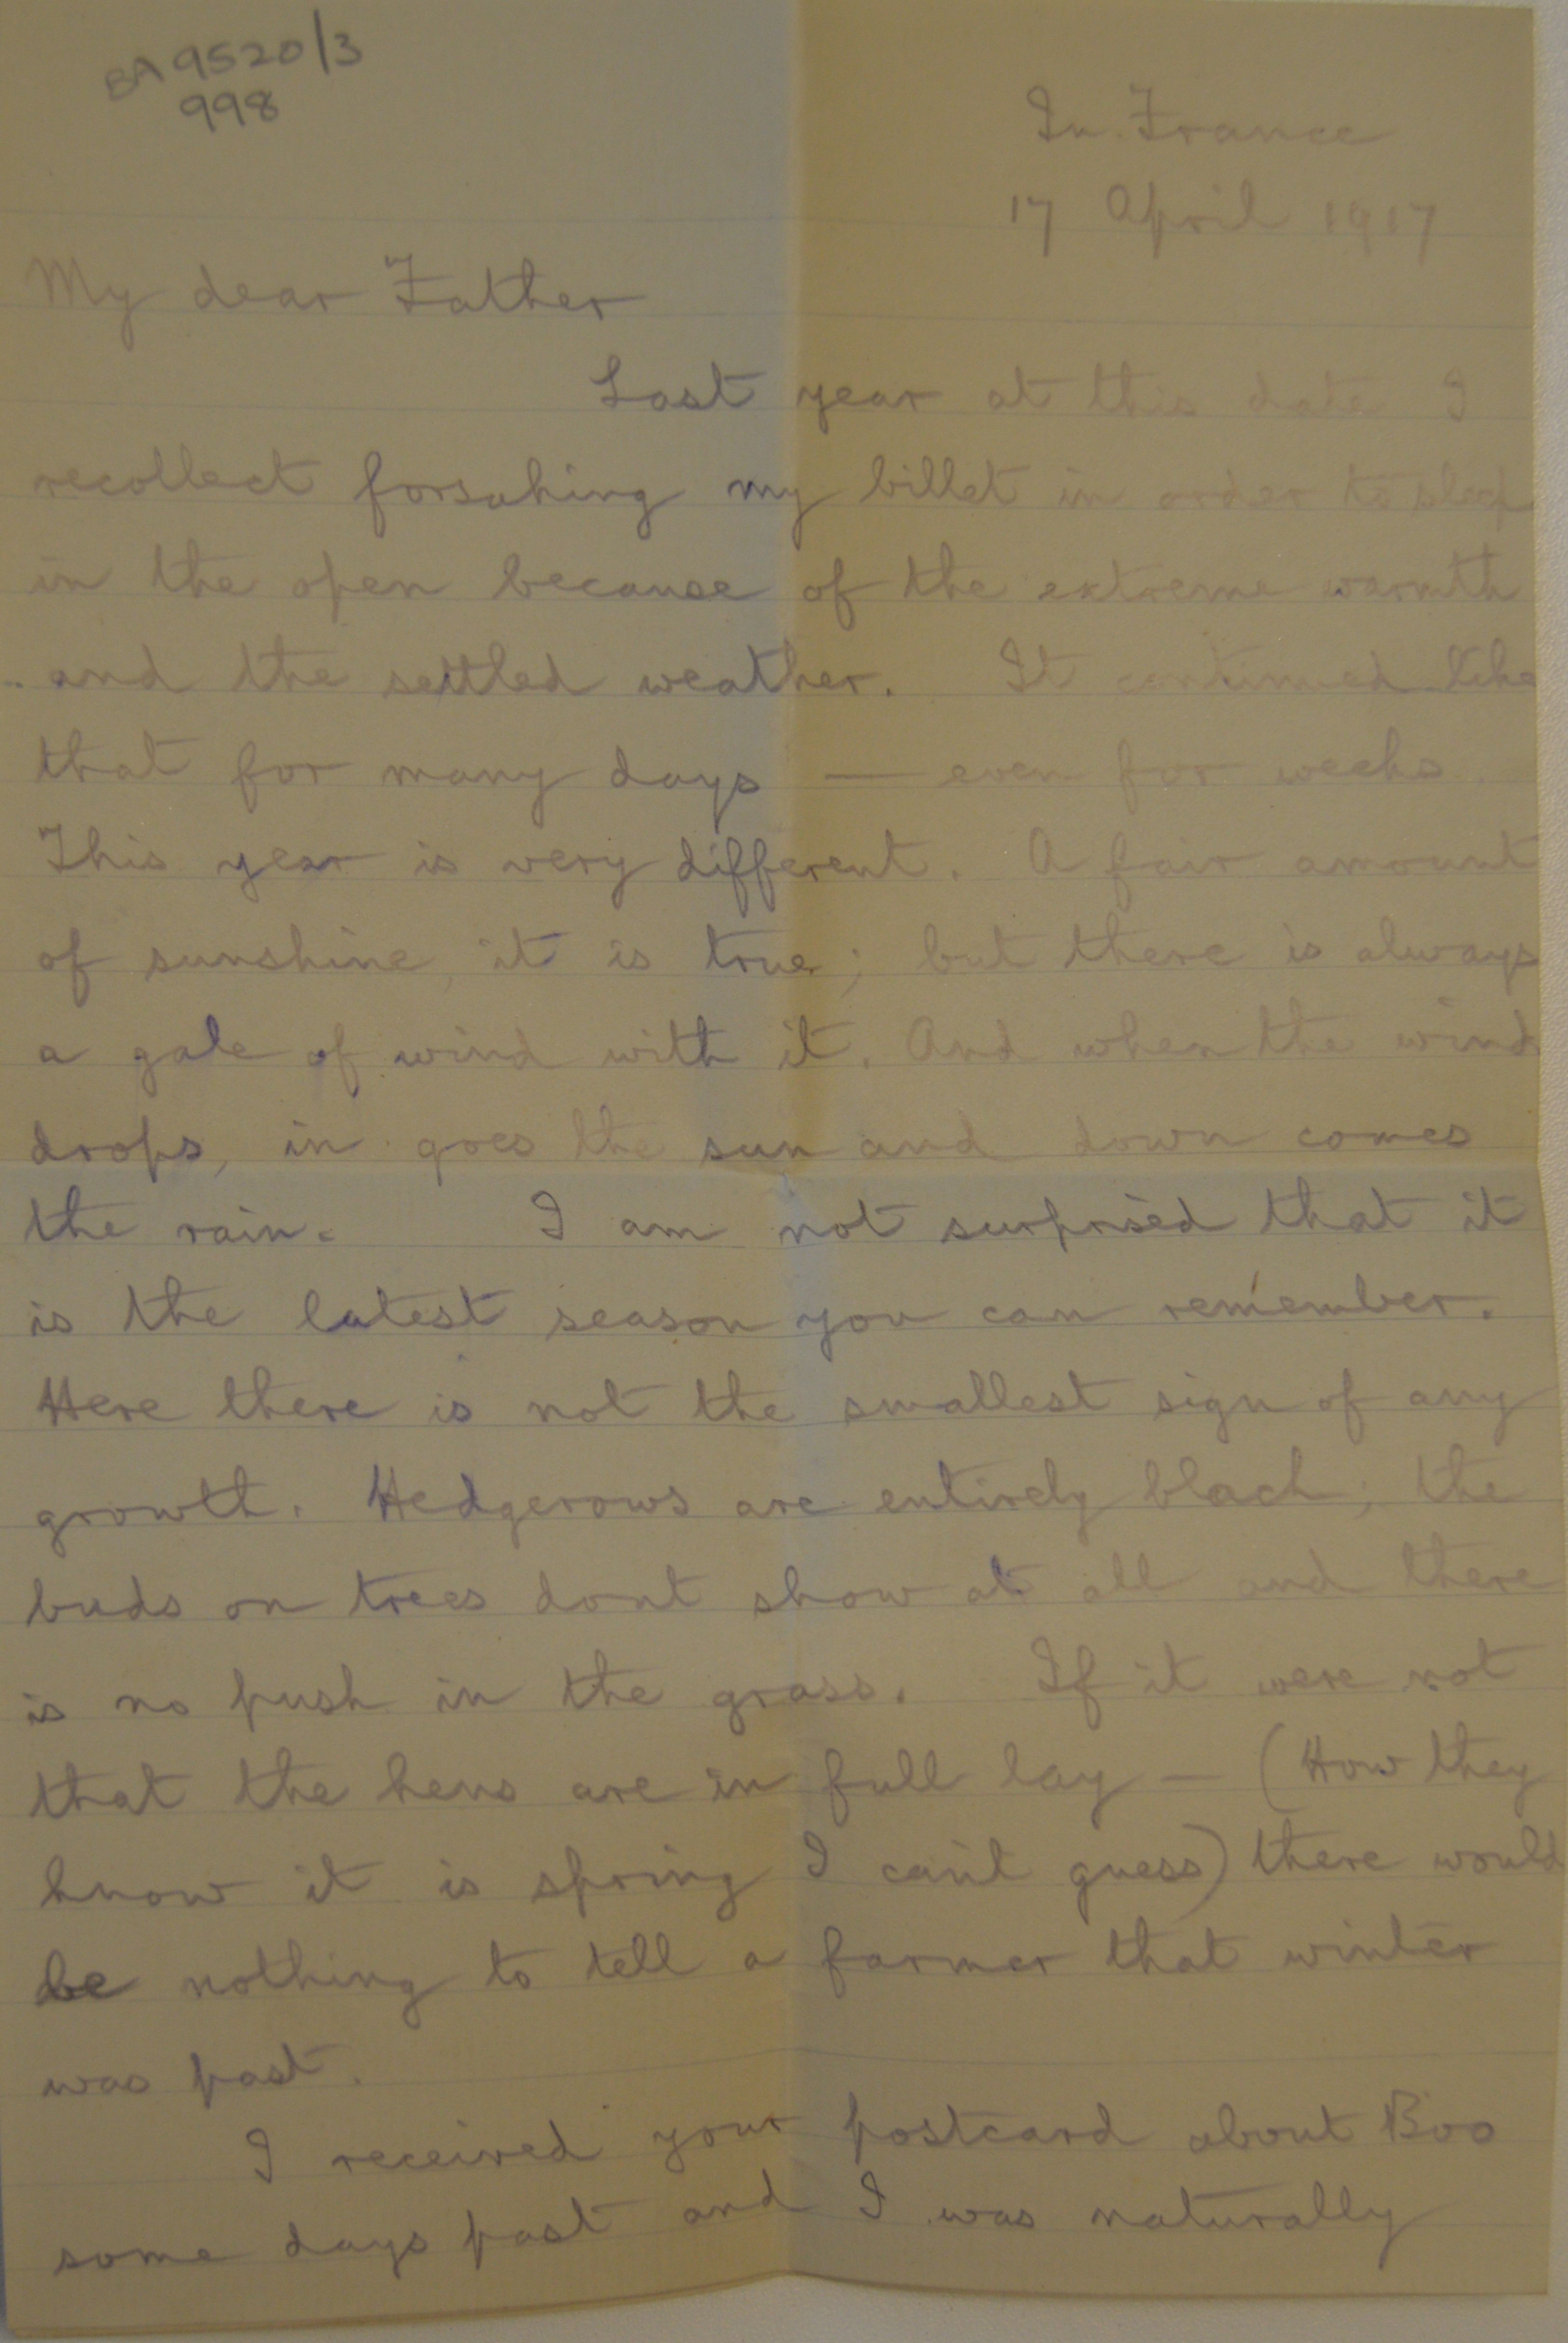 BA 9520/3
998
In France
17 April 1917
My dear Father
Last year at this date I
recollect forsaking my billet in order to sleep
in the open because of the extreme warmth
and the settled weather. It continued like
that for many days — even for weeks.
This year is very different. A fair amount
of sunshine, it is true; but there is always
a gale of wind with it. And when the wind
drops, in goes the sun and down comes
the rain. I am not surprised that it
is the latest season you can remember.
Here there is not the smallest sign of any
growth. Hedgerows are entirely black; the
buds on trees dont show at all and there
is no push in the grass. If it were not
that the hens are in full lay — (How they
know it is spring I can't guess) there would
be nothing to tell a farmer that winter
was past.
I received your postcard about Boo
some days past and I was naturally